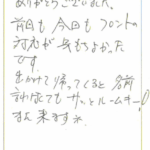 ありがとうございました。
前回も今回もフロントの
対応が良もちよかった
です。
出かけて帰ってくると名前
言わなくてもサッとルームキー!
また来ますネ